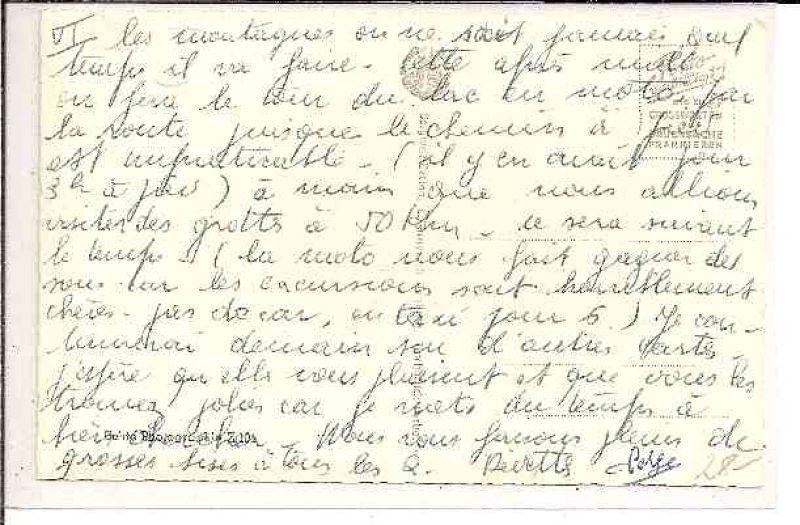 VI les montagnes on ne sait jamais quel
temps il va faire. Cette après midi
on fera le tour du lac en moto par
la route puisque le chemin à pied
est impraticable - (il y en avait pour
3h à pied) à moins que nous allions
visiter des grottes à 50 Km - ce sera suivant
le temps - (la moto nous fait gagner des
sous car les excursions sont horriblement
chères - pas de car, en taxi pour 6.) Je con-
tinuerai demain sur d'autres cartes
j'espère qu'elles vous plaisent et que vous les
trouvez jolies car je mets du temps à
Nous vous faisons pleins de
grosses bises à tous les 2. Pierrette Serge 28
GROSSPACKUNG
FRANKIEREN